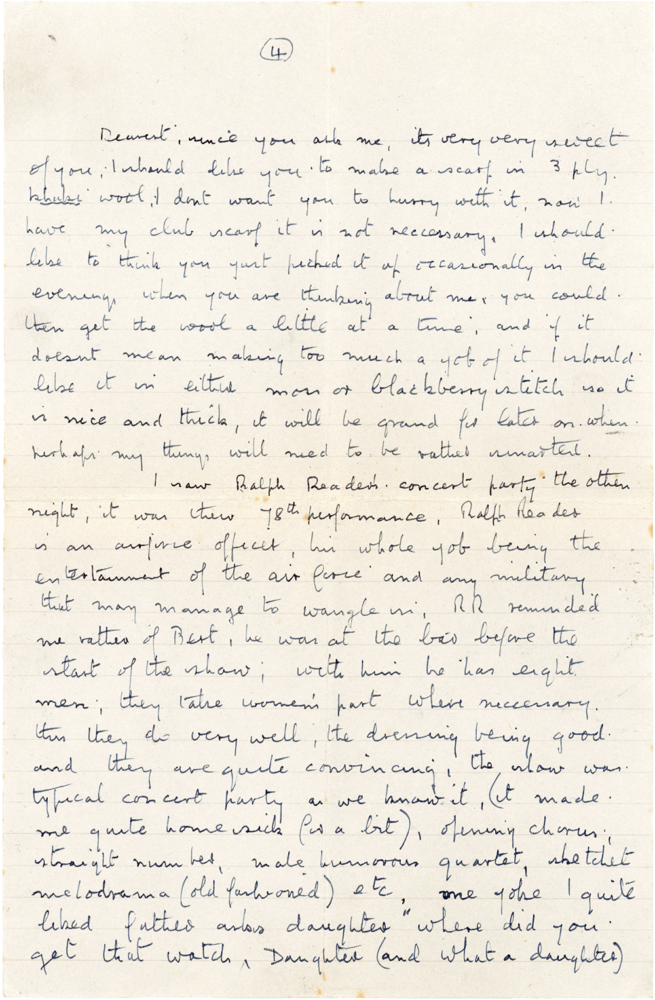 4
Dearest, since you ask me, its very very sweet
of you, I should like you to make a scarf in 3 ply.
khaki wool, I dont want you to hurry with it, now I
have my club scarf it is not neccessary, I should
like to think you just picked it up occasionally in the
evenings when you are thinking about me, you could
then get the wool a little at a time, and if it
doesnt mean making too much a job of it I should
like it in either moss or blackberry stitch so it
is nice and thick, it will be grand for later on when
perhaps my things will need to be rather smarted.
I saw Ralph Reader's concert party the other
night, it was there 78th performance, Ralph Reader
is an airforce officer, his whole job being the
entertainment of the air force and any military
that may manage to wangle in, RR reminded
me rather of Best, he was at the bar before the
start of the show; with him he has eight
men, they take women's part where neccessary.
this they do very well, the dressing being good
and they are quite convincing, the show was
typical concert party as we know it, (it made
me quite homesick for a bit), opening chorus,
straight number, male humorous quartet, sketches
melodrama (old fashioned) etc, one joke I quite
liked father asks daughter "where did you
get that watch, Daughter (and what a daughter)